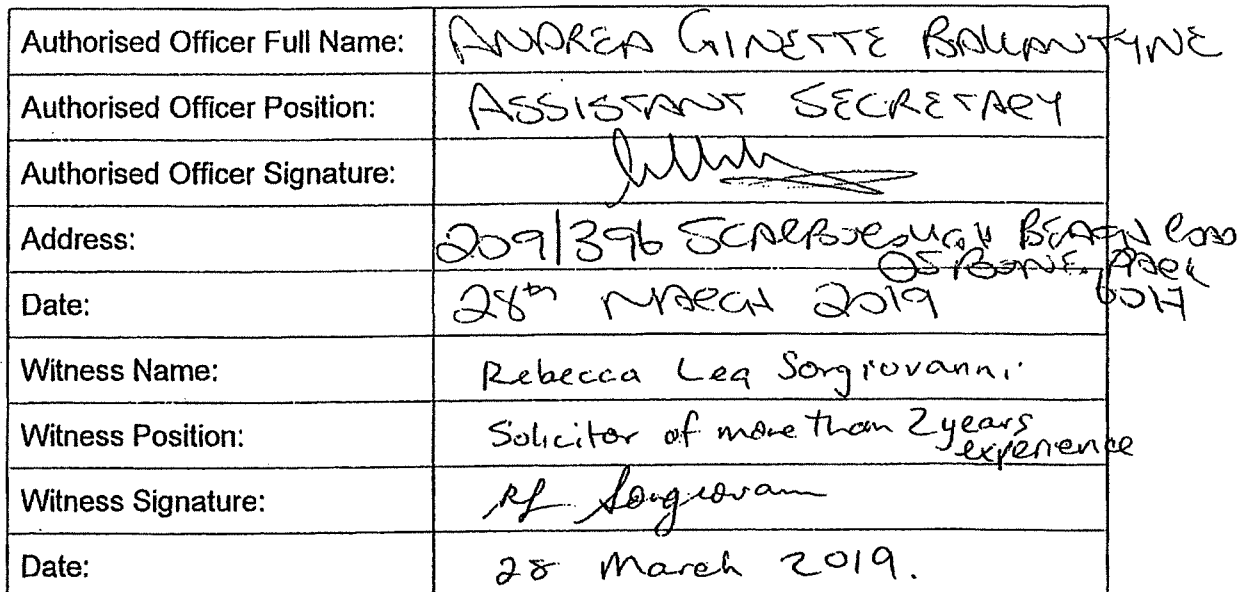 Authorised Officer Full Name: ANDREA GINETTE BALLANTYNE
Authorised Officer Position: ASSISTANT SECRETARY
Authorised Officer Signature:
Address: 209/396 SCARBOROUGH BEACH ROAD
OSBORNE PARK
6017
Date: 28th MARCH 2019
Witness Name: Rebecca Lea Sorgiovanni
Witness Position: Solicitor of more than 2 years
experience
Witness Signature: RL Sorgiovanni
Date: 28 March 2019.